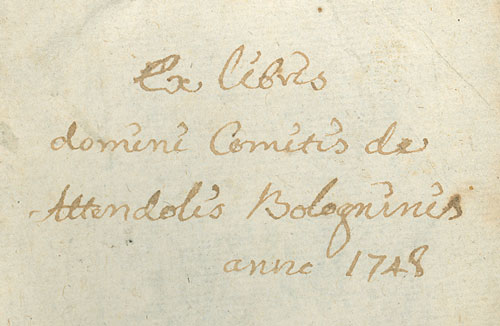 Ex libris
domini Comitis de
Attendolis Bologninis
anno 1748